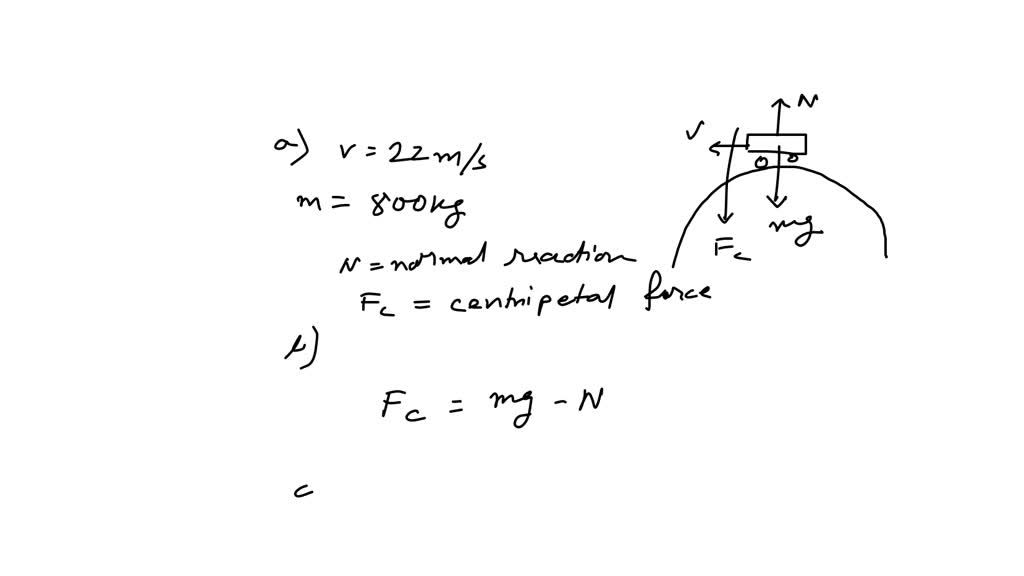 a) v = 22 m/s
m = 800kg
N = normal reaction
Fc = centripetal force
b)
Fc = mg - N
c
N
v
mg
Fc